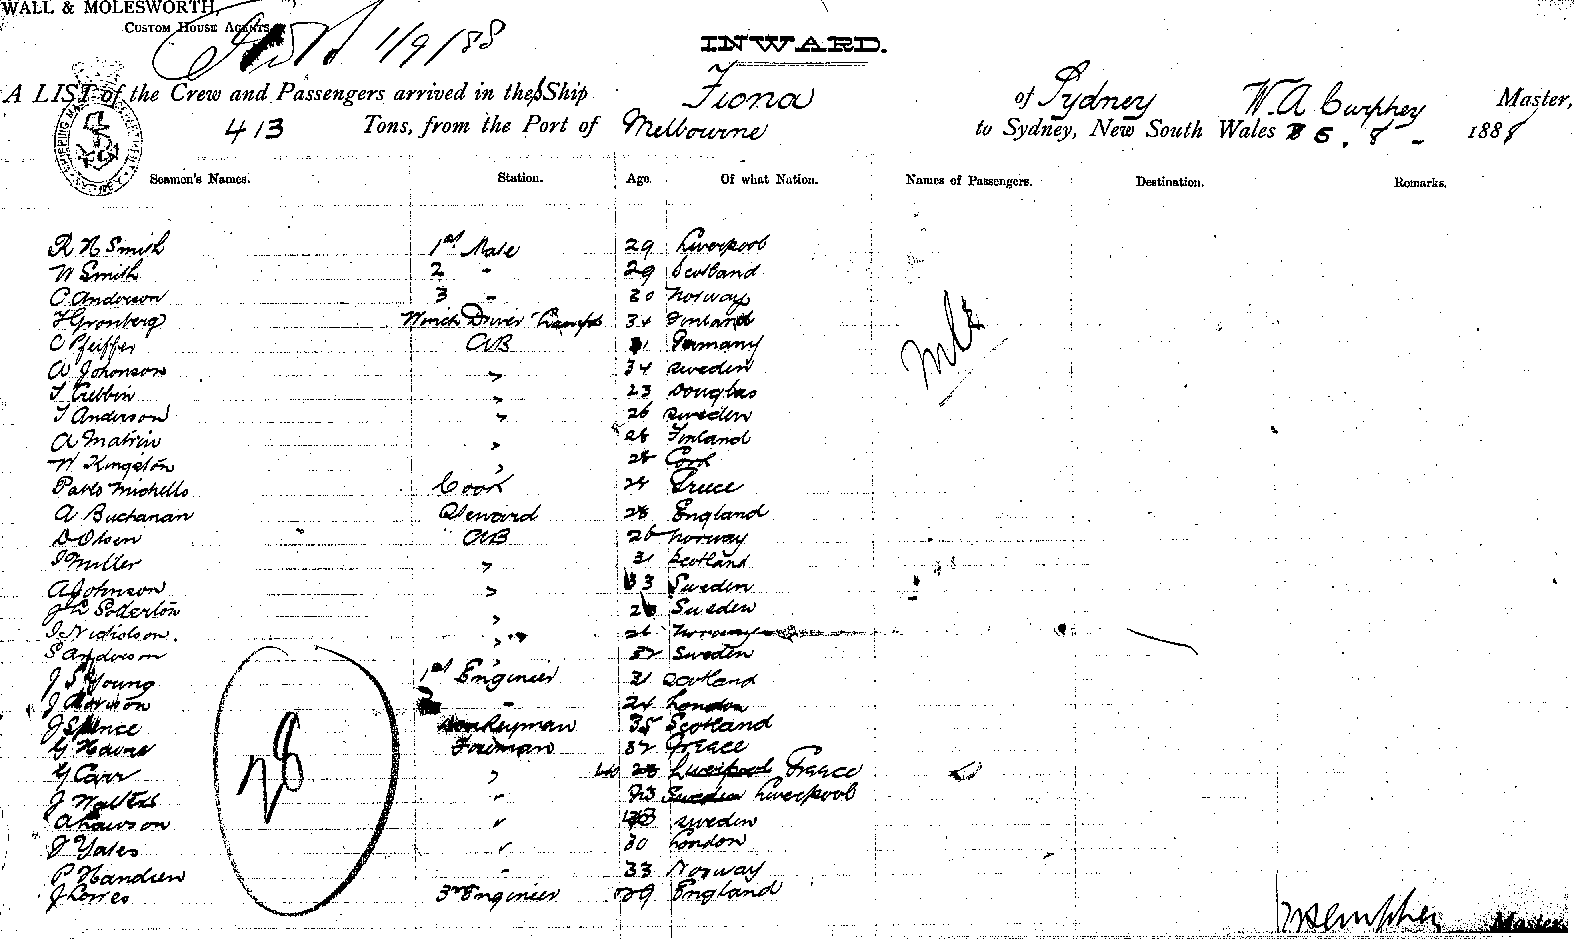 WALL & MOLESWORTH,
CUSTOM HOUSE AGENTS
1/9/88
INWARD.
A LIST of the Crew and Passengers arrived in the Ship Fiona of Sydney W. A Curphey Master,
413 Tons, from the Port of Melbourne to Sydney, New South Wales 5. 8 - 1888
Seamen's Names. Station. Age. Of what Nation. Names of Passengers. Destination. Remarks.
R N Smith 1st Mate 29 Liverpool
W Smith 2 " 29 Scotland
C Anderson 3 " 30 Norway
F Gronberg Winch Driver Lamps 34 Finland
C Pfeiffer AB 31 Germany
A Johonson " 34 Sweden
T Cubbin " 23 Douglas
T Anderson " 26 Sweden
A Matrin " 28 Finland
W Kingston " 28 Cork
Pablo Michello Cook 24 Greece
A Buchanan Steward 28 England
D Olsen AB 26 Norway
J Miller " 31 Scotland
A Johnson " 33 Sweden
Soderlon " Sweden
J Nicholson. " 26 Norway
S Anderson " 32 Sweden
J S Young 1st Engineer 31 Scotland
J 2 " 24 London
J Spence Donkeyman 35 Scotland
G Havre Fireman 32 Greece
G Carr " 40 28 Liverpool Greece
J Walters " 23 Sweden Liverpool
A Lawson " Sweden
J Yates " 30 London
P Handren " 33 Norway
J Lowes 3rd Engineer 29 England
W A Curphey Master